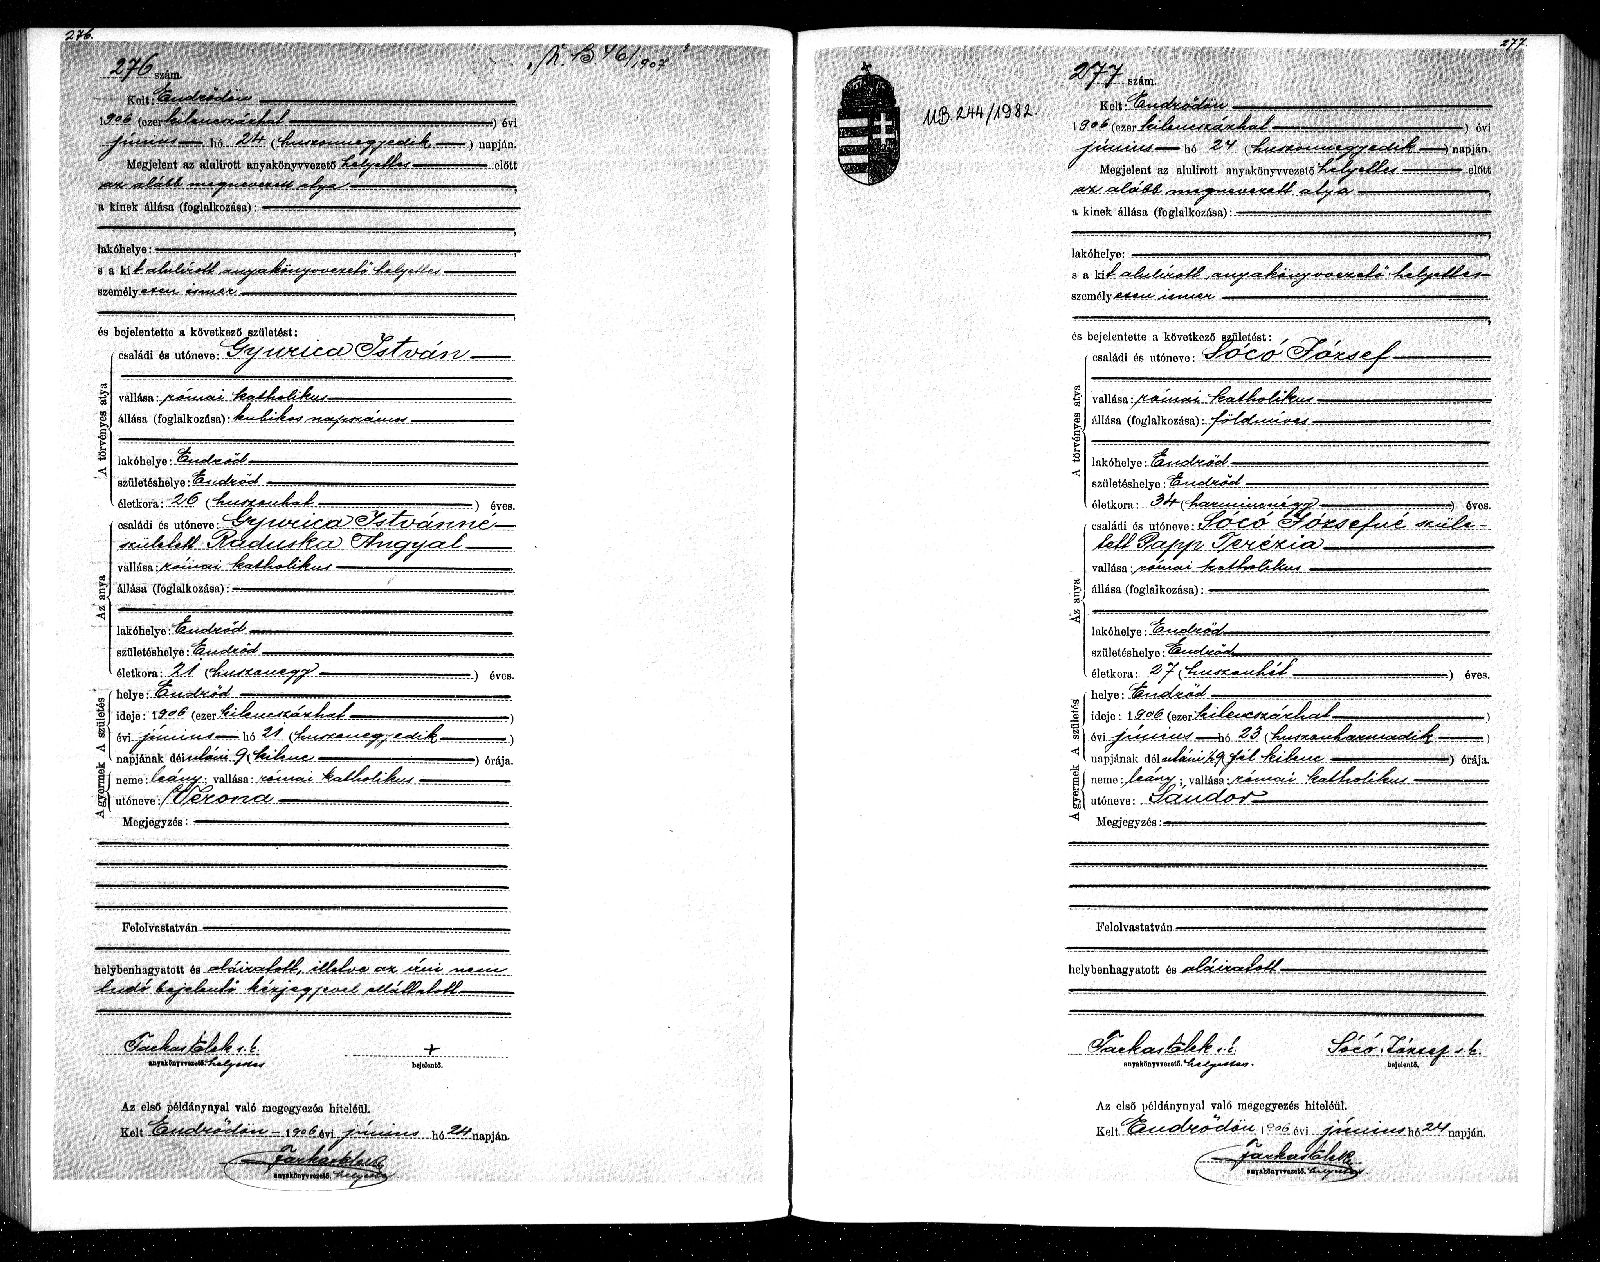 276.
276 szám.
Kelt: Endrődön
1906 (ezer kilenczázhat) évi
június hó 24 (huszonnegyedik) napján.
Megjelent az alulirott anyakönyvvezető helyettes előtt
az alább megnevezett atya,
a kinek állása (foglalkozása):
lakóhelye:
s a kit alulírott anyakönyvvezető helyettes
személyesen ismer
és bejelentette a következő születést:
A törvényes atya
családi és utóneve: Gyurica István
vallása: római katholikus
állása (foglalkozása): kubikos napszámos
lakóhelye: Endrőd
születéshelye: Endrőd
életkora: 26 (huszonhat) éves.
Az anya
családi és utóneve: Gyurica Istvánné
született Raduska Angyal
vallása: római katholikus
állása (foglalkozása):
lakóhelye: Endrőd
születéshelye: Endrőd
életkora: 21 (huszonegy) éves.
A születés
helye: Endrőd
ideje: 1906 (ezer kilenczázhat)
évi június hó 21 (huszonegyedik)
napjának délutáni 9 (kilenc) órája.
A gyermek
neme: leány; vallása: római katholikus
utóneve: Verona
Megjegyzés:
Felolvastatván
helybenhagyatott és aláiratott, illetve az írni nem
tudó bejelentő kézjegyével elláttatott
Farkas Elek s.k.
+
anyakönyvvezető. helyettes
bejelentő.
Az első példánynyal való megegyezés hiteléül.
Kelt Endrődön 1906 évi június hó 24 napján.
Farkas Elek
anyakönyvvezető. helyettes
277.
MB. 244/1982.
277 szám.
Kelt: Endrődön
1906 (ezer kilenczázhat) évi
június hó 24 (huszonnegyedik) napján.
Megjelent az alulirott anyakönyvvezető helyettes előtt
az alább megnevezett atya,
a kinek állása (foglalkozása):
lakóhelye:
s a kit alulírott anyakönyvvezető helyettes
személyesen ismer
és bejelentette a következő születést:
A törvényes atya
családi és utóneve: Sócó József
vallása: római katholikus
állása (foglalkozása): földmíves
lakóhelye: Endrőd
születéshelye: Endrőd
életkora: 34 (harmincnégy) éves.
Az anya
családi és utóneve: Sócó Józsefné szüle-
tett Papp Terézia
vallása: római katholikus
állása (foglalkozása):
lakóhelye: Endrőd
születéshelye: Endrőd
életkora: 27 (huszonhét) éves.
A születés
helye: Endrőd
ideje: 1906 (ezer kilenczázhat)
évi június hó 23 (huszonharmadik)
napjának délutáni ½9 (fél kilenc) órája.
A gyermek
neme: leány; vallása: római katholikus
utóneve: Sándor
Megjegyzés:
Felolvastatván
helybenhagyatott és aláiratott
Farkas Elek s.k.
Sócó József s.k.
anyakönyvvezető. helyettes.
bejelentő.
Az első példánynyal való megegyezés hiteléül.
Kelt Endrődön 1906 évi június hó 24 napján.
Farkas Elek
anyakönyvvezető. helyettes